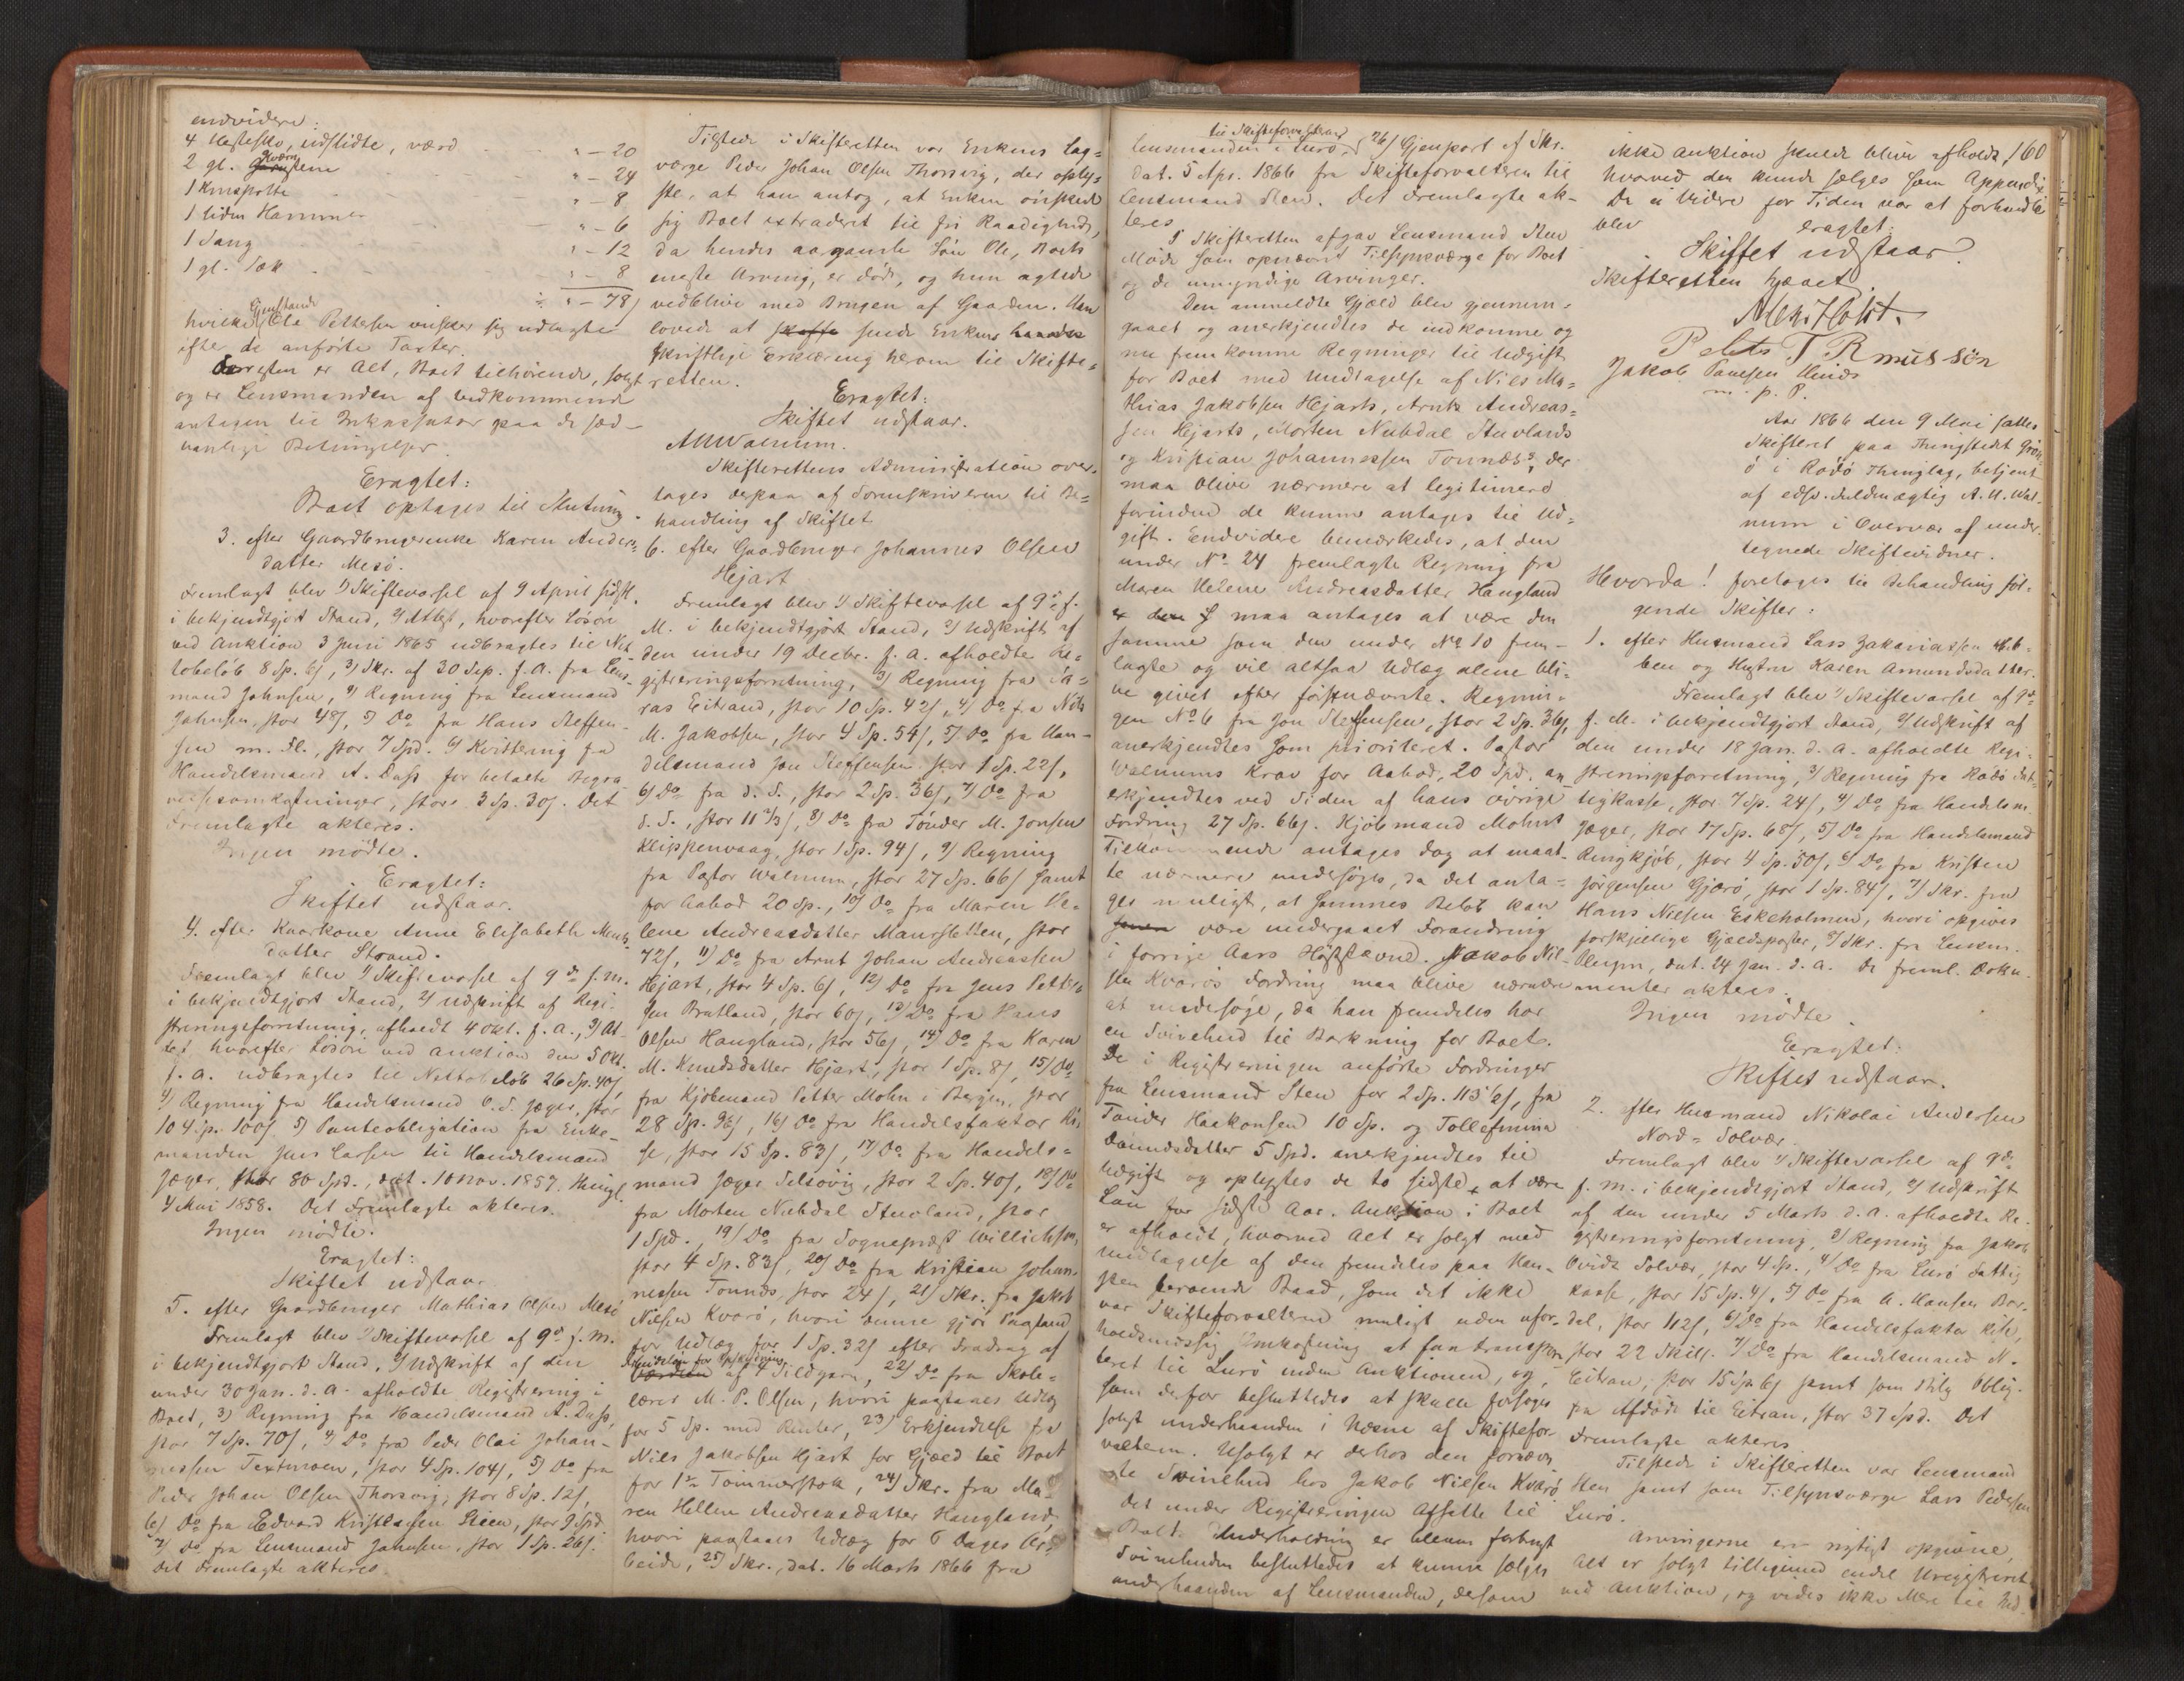 endvidere:
4 Hestesko, udslidte, værd " - 20
2 gl. Kværnstene " - 24
1 Krusspotte " - 8
1 liden Hammer " - 6
1 Tang " - 12
1 gl. Sæk " - 8
" - 78ſ
hvilke Gjenstande Ole Pettersen ønsker sig udlagte
efter de anførte Taxter.
Forresten er Alt, Boet tilhørende, solgt
og er Lensmanden af Vedkommende
antagen til Inkassator paa de sæd-
vanlige Betingelser.
Eragtet:
Boet optages til Slutning.
3. efter Gaardbrugerenke Karen Anders-
datter Mesø.
Fremlagt blev 1) Skiftevarsel af 9 April sidstl.
i bekjendtgjort Stand, 2) Attest, hvorefter Løsøre
ved Auktion 3 Juni 1865 udbragtes til Net-
tobeløb 8 Sp. 6ſ, 3) Skr. af 30 Sep. f. A. fra Lens-
mand Johnsen, 4) Regning fra Lensmand
Johnsen, stor 48ſ, 5) Do fra Hans Steffen-
sen m. Fl., stor 7 Spd. 6) Kvittering fra
Handelsmand A. Dass for betalte Begra-
velsesomkostninger, stor 3 Sp. 30ſ. Det
Fremlagte akteres.
Ingen mødte.
Eragtet:
Skiftet udstaar.
4. efter Kaarkone Anne Elisabeth Monts-
datter Strand.
Fremlagt blev 1) Skiftevarsel af 9de f. M.
i bekjendtgjort Stand, 2) Udskrift af Regi-
streringsforretning, afholdt 4 Okt. f. A., 3) At-
test hvorefter Løsøre ved Auktion den 5 Okt.
f. A. udbragtes til Nettobeløb 26 Sp. 40ſ
4) Regning fra Handelsmand C. S. Jæger, stor
104 Sp. 100ſ 5) Panteobligation fra Enke-
manden Jens Larsen til Handelsmand
Jæger, stor 80 Spd., dat. 10 Nov. 1857. thingl.
4 Mai 1858. Det Fremlagte akteres.
Ingen mødte.
Eragtet:
Skiftet udstaar.
5. efter Gaardbruger Mathias Olsen Mesø
Fremlagt blev 1) Skiftevarsel af 9de f. M.
i bekjendtgjort Stand, 2) Udskrift af den
under 30 Jan. d. A. afholdte Registrering i
Boet, 3) Regning fra Handelsmand A. Dass,
stor 7 Sp. 70ſ, 4) Do fra Peder Olai Johan-
nessen Texmoen, stor 4 Sp. 104ſ, 5) Do fra
Peder Johan Olsen Thorsvig, stor 8 Sp. 12ſ,
6) Do fra Edvard Kristensen Steen, stor 9 Spd
7) Do fra Lensmand Johnsen, stor 1 Sp. 26ſ.
Det Fremlagte akteres.
Tilstede i Skifteretten var Enkens Lag-
værge Peder Johan Olsen Thorsvig, der oply-
ste, at han antog, at Enken ønskede
sig Boet extraderet til fri Raadighed,
da hendes aargamle Søn Ole, Boets
eneste Arving, er død, og hun agtede
vedblive med Brugen af Gaarden. Han
lovede at skaffe sende Enkens
skriftlige Erklæring herom til Skifte-
retten.
Eragtet:
Skiftet udstaar.
AUWalnum.
Skifterettens Administration over-
tages derpaa af Sorenskriveren til Be-
handling af Skiftet
6. efter Gaardbruger Johannes Olsen
Hejart
Fremlagt blev 1) Skiftevarsel af 9de f.
M. i bekjendtgjort Stand, 2) Udskrift af
den under 19 Decbr. f. A. afholdte Re-
gistreringsforretning, 3) Regning fra La-
ras Eitrand, stor 10 Sp. 42ſ, 4) Do fra Nils
M. Jakobsen, stor 4 Sp. 54ſ, 5) Do fra Han-
delsmand Jon Steffensen stor 1 Sp. 22ſ,
6) Do fra d. S., stor 2 Sp. 36ſ, 7) Do fra
d. S., stor 11 2/3ſ, 8) Do fra Tønder M. Jonsen
Klippenvaag, stor 1 Sp. 94ſ, 9) Regning
fra Pastor Walnum, stor 27 Sp. 66ſ samt
for Aabod 20 Sp., 10) Do fra Maren He-
lene Andreasdatter Maursletten, stor
72ſ, 11) Do fra Arnt Johan Andreassen
Hejart, stor 4 Sp. 6ſ, 12) Do fra Jens Petter-
sen Bratland, stor 60ſ, 13) Do fra Hans
Olsen Haugland, stor 56ſ, 14) Do fra Karen
M. Knudsdatter Hjart, stor 1 Sp. 8ſ, 15) Do
fra Kjøbmand Petter Mohn i Bergen, stor
28 Sp. 96ſ, 16) Do fra Handelsfaktor Ki-
se, stor 15 Sp. 83ſ, 17) Do fra Handels-
mand Jæger Selsøvig, stor 2 Sp. 40ſ, 18) Do
fra Morten Nubdal Stuvland, stor
1 Spd., 19) Do fra Sogneprest Willichsen,
stor 4 Sp. 83ſ, 20) Do fra Kristian Johan-
nessen Tonnes, stor 24ſ, 21) Skr. fra Jakob
Nilsen Kvarø, hvori denne gjør Paastand
for Udlæg for 1 Sp. 32ſ efter Fradrag af
af 4 Sildgarn, 22) Do fra Skole-
lærer M. P. Olsen, hvori paastaaes Udlæg
for 5 Sp. med Renter, 23) Erkjendelse fra
Nils Jakobsen Hjart for Gjæld til Boet
for 1 Tømmerstok, 24) Skr. fra Ma-
ren Hellene Andreasdatter Haugland,
hvori paastaaes Udlæg for 6 Dages Ar-
beide, 25) Skr., dat. 16 Marts 1866 fra
Lensmanden i Lurø til Skifteforvalteren, 26) Gjenpart af Skr.
dat. 5 Apr. 1866 fra Skifteforvalteren til
Lensmand Sten. Det Fremlagte ak-
teres
I Skifteretten afgav Lensmand Sten
Møde som opnævnt Tilsynsværge for Boet
og de umyndige Arvinger.
Den anmeldte Gjæld blev gjennem-
gaaet og anerkjendtes de indkomne og
nu fremkomne Regninger til Udgift
for Boet med Undtagelse af Nils Ma-
thias Jakobsen Hejarts, Arnts Andreas-
sen Hejarts, Morten Nubdal Stuvlands
og Kristian Johannessen Tonnes's, der
maa blive nærmere at legitimere
forinden de kunne antages til Ud-
gift. Endvidere bemærkedes, at den
under No 24 fremlagte Regning fra
Maren Helene Andreasdatter Haugland
maa antages at være den
samme som den under No 10 frem-
lagte og vil altsaa Udlæg alene bli-
ve givet efter førstnævnte. Regnin-
gen No 6 fra Jon Steffensen, stor 2 Sp. 36ſ,
anerkjendtes som prioriteret. Pastor
Walnums Krav for Aabod, 20 Spd. an-
erkjendtes ved Siden af hans øvrige
Fordring 27 Sp. 66ſ. Kjøbmand Mohns
Tilkommende antages dog at maat-
te nærmere undersøges, da det anta-
ges muligt, at sammes Beløb kan
være undergaaet Forandring
i forrige Aars Høststevne. Jakob Nil-
sen Kvarøs Fordring maa blive nærmere
at undersøge, da han fremdeles har
en Svinehud til Barkning for Boet.
De i Registreringen anførte Fordringer
fra Lensmand Sten for 2 Sp. 113 6ſ, fra
Tønder Haakonsen 10 Sp. og Tollefmina
Daniedsdatter 5 Spd. anerkjendtes til
Udgift og oplystes de to sidste at være
Løn for sidste Aar. Auktion i Boet
er afholdt, hvorved Alt er solgt med
Undtagelse af den fremdeles paa Han-
sten beroende Baad, som det ikke
var Skifteforvalteren muligt uden ufor-
holdsmæssig Omkostning at faa transpor-
teret til Lurø inden Auktionen, og,
som derfor besluttedes at skulle forsøges
solgt underhaanden i Nesne af Skiftefor-
valteren. Usolgt er derhos den fornævn
te Svinehud hos Jakob Nilsen Kvarø
det under Registreringen Afsatte til
Boets Underholdning er bleven forbrugt
Svinehuden besluttedes at kunne sælges
underhaanden af Lensmanden, dersom
160
ikke Auktion skulde blive afholdt,
hvorved den kunde sælges som Appendix
Da ei videre for Tiden var at forhandle
blev eragtet:
Skiftet udstaar.
Skifteretten hævet.
Alex Holst.
Peder T Rasmussøn
Jakob Paulsen Hinds
m. p. P.
Aar 1866 den 9 Mai sattes
Skifteret paa Thingstedet Grøn-
ø i Rødø Thinglag, betjent
af edsv. Fuldmægtig A. U. Wal-
num i Overvær af under-
tegnede Skiftevidner.
Hvorda! foretoges til Behandling føl-
gende Skifter:
1. efter Husmand Lars Zakariassen
og Hustru Karen Amundsdatter.
Fremlagt blev 1) Skiftevarsel af 9de
f. M. i bekjendtgjort Stand, 2) Udskrift af
den under 18 Jan. d. A. afholdte Regi-
streringsforretning, 3) Regning fra Rødø Fat-
tigkasse, stor 7 Sp. 24ſ, 4) Do fra Handelsm.
Jæger, stor 17 Sp. 68ſ, 5) Do fra Handelsmand
Ringkjøb, stor 4 Sp. 50ſ, 6) Do fra Kristen
Jørgensen Gjærø, stor 1 Sp. 84ſ, 7) Skr. fra
Hans Nilsen Eskeholmen, hvori opgives
forskjellige Gjældsposter, 8) Skr. fra Lensm.
dat. 24 Jan. d. A. De freml. Doku-
menter akteres.
Ingen mødte.
Eragtet:
Skiftet udstaar.
2. efter Husmand Nikolai Andersen
Nord-Solvær.
Fremlagt blev 1) Skiftevarsel af 9de
f. M. i bekjendtgjort Stand, 2) Udskrift
af den under 5 Marts d. A. afholdte Re-
gistreringsforretning, 3) Regning fra Jakob
Ovids Solvær, stor 4 Sp., 4) Do fra Lurø Fattig-
kasse, stor 15 Sp. 4ſ, 5) Do fra A. Hansen Bor-
dal, stor 112ſ, 6) Do fra Handelsfaktor Kise,
stor 22 Skill. 7) Do fra Handelsmand N.
Eitran, stor 15 Sp. 6ſ samt som Bilag Oblig.
fra Afdøde til Eitran, stor 37 Spd. Det
Fremlagte akteres.
Tilstede i Skifteretten var Lensmand
Sten samt som Tilsynsværge Lars Pedersen
Lurø.
Arvingerne ere rigtigt opgivne,
Alt er solgt tilligemed endel Uregistreret
ved Auktion, og vides ikke Mere til Ind-